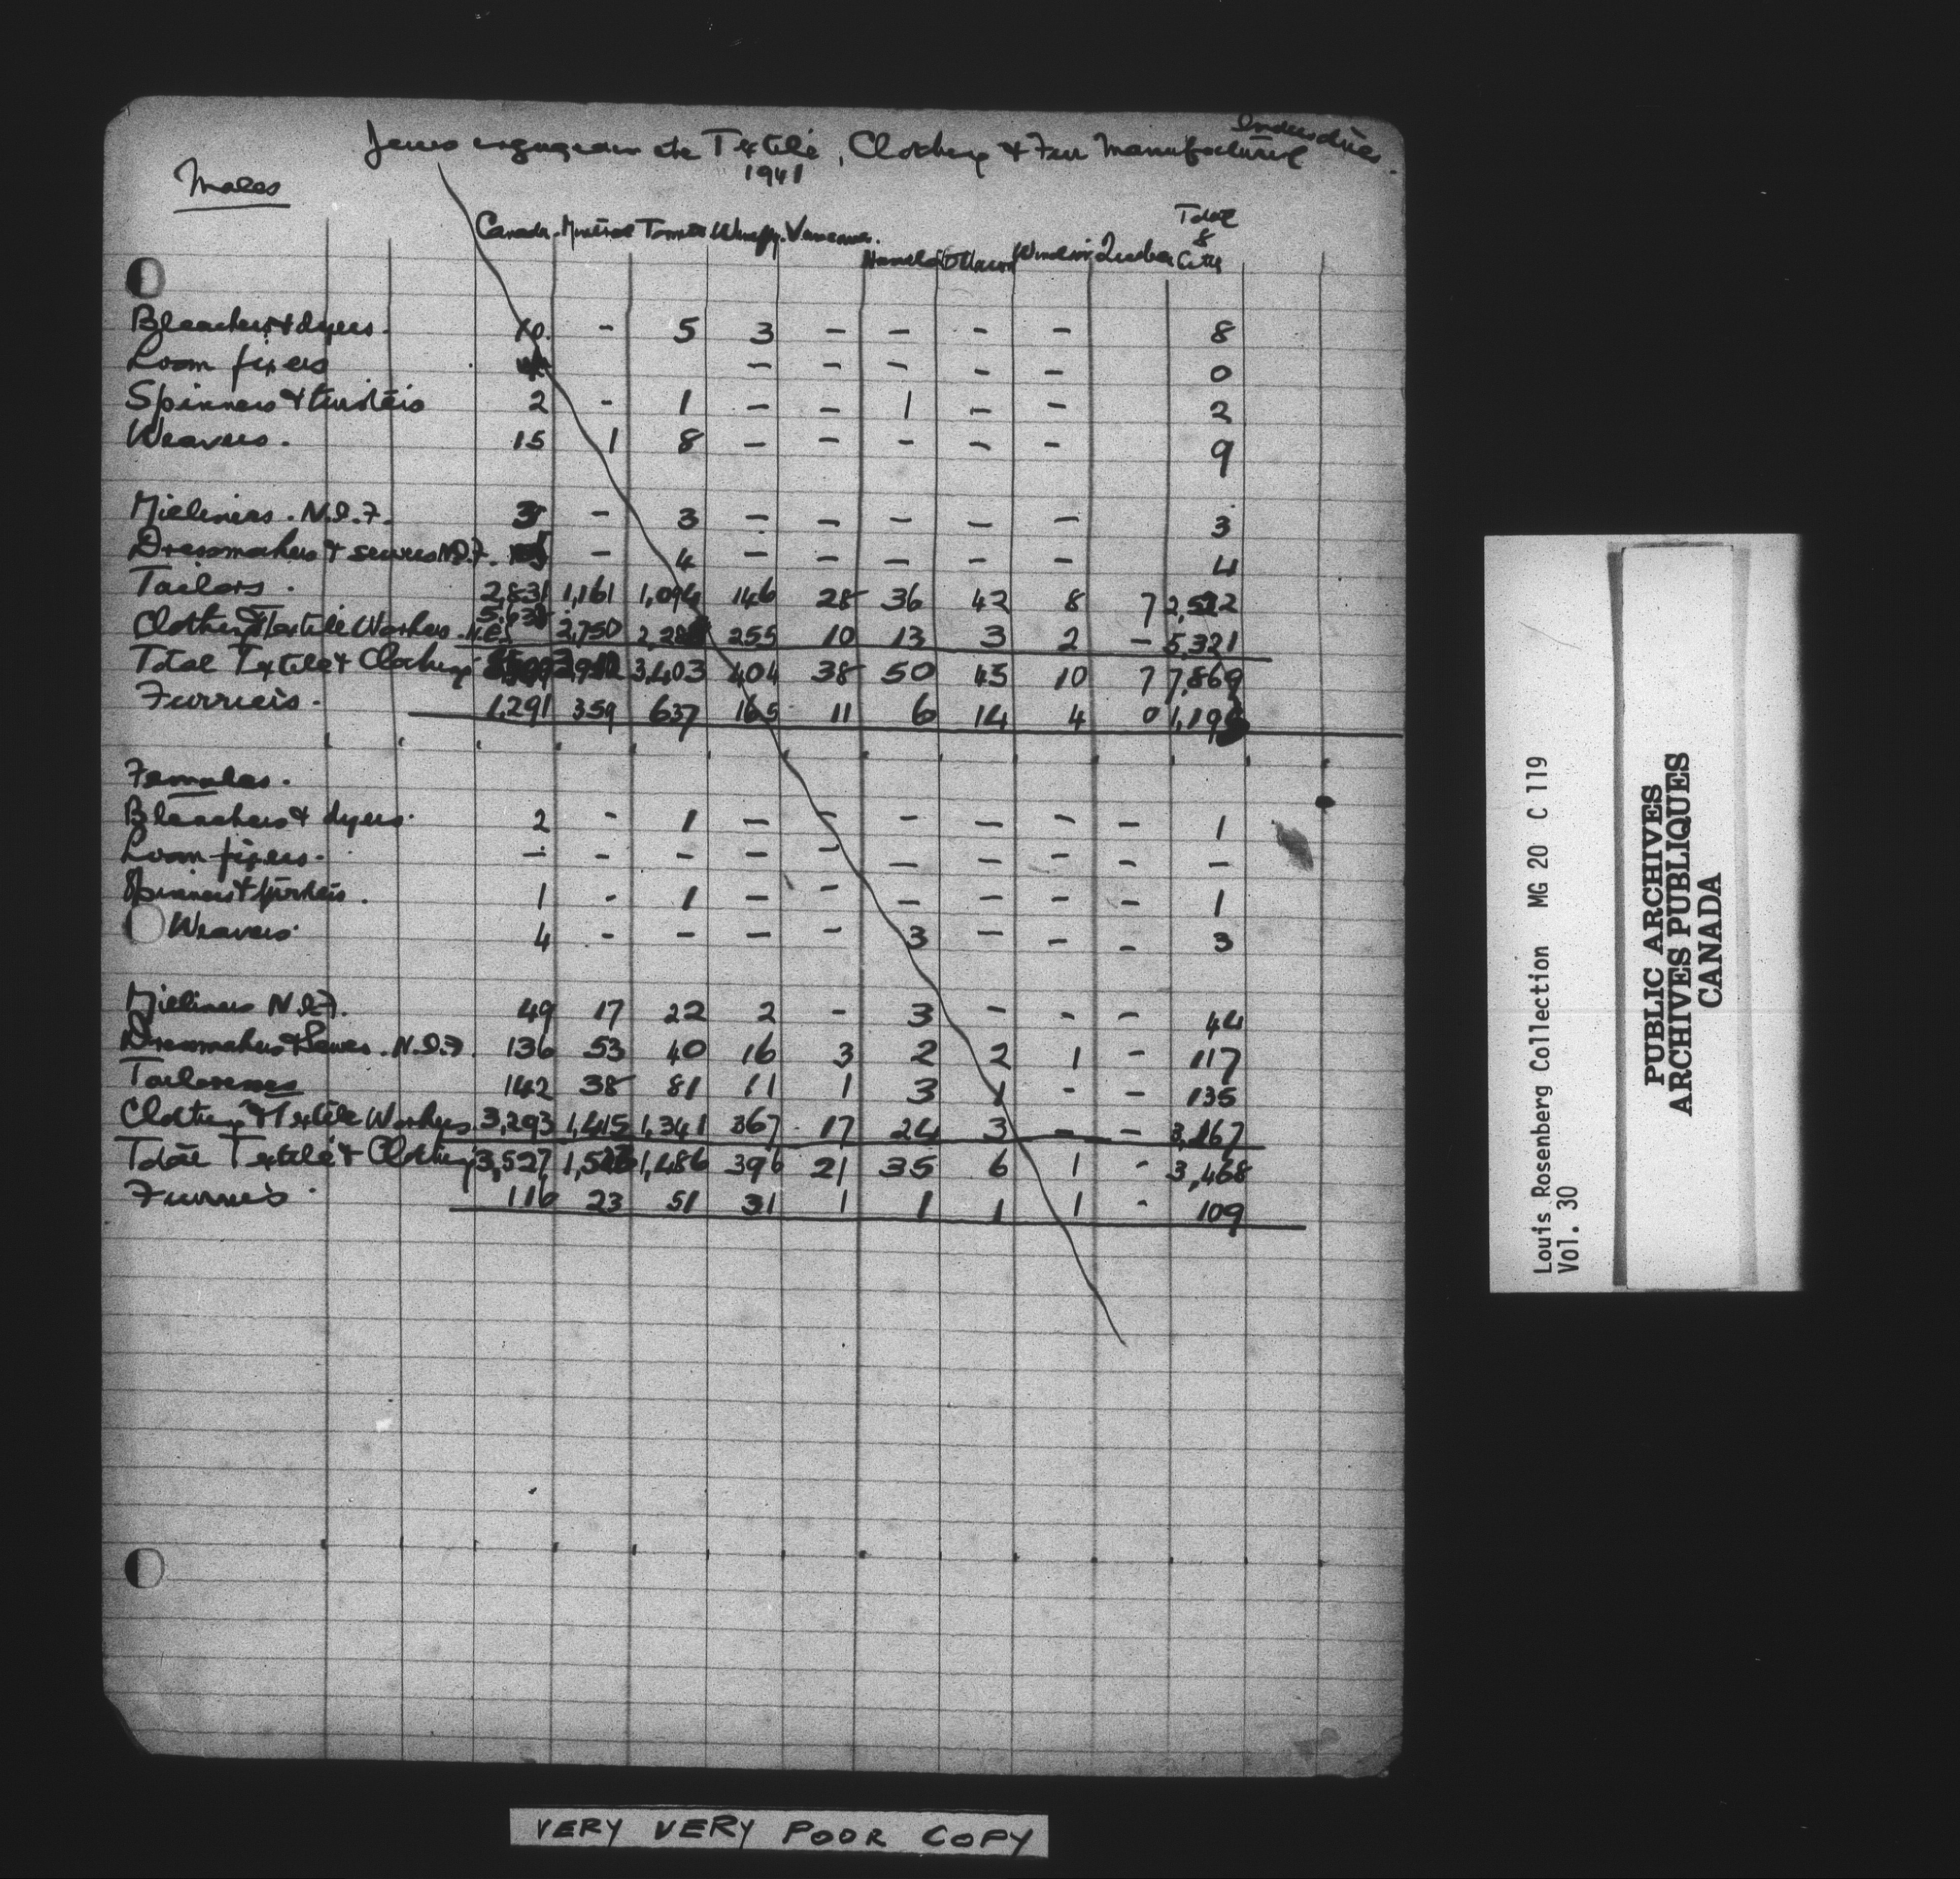 Jews engaged in the Textile, Clothing & Fur Manufacturing Industries.
1941
Males
Canada. Montreal Toronto Winnipg. Vancouver. Hamilton Ottawa Windsor Quebec Total 8 Cities
Bleachers & dyers. 10. - 5 3 - - - - 8
Loom fixers - - - - - 0
Spinners & twisters 2 - 1 - - 1 - - 2
Weavers. 15 1 8 - - - - - 9
Milliners. N.I.F. 3 - 3 - - - - - 3
Dressmakers & sewers N.I.F. - 4 - - - - - 4
Tailors. 2,831 1,161 1,094 146 28 36 42 8 7
Clothing & Textile Workers N.E.S. 2,750 255 10 13 3 2 - 5,321
Total Textile & Clothing 3,403 404 38 50 45 10 7 7,869
Furriers. 1,291 359 637 165 11 6 14 4 0
Females.
Bleachers & dyers. 2 - 1 - - - - - - 1
Loom fixers. - - - - - - - - - -
Spinners & twisters. 1 - 1 - - - - - - 1
Weavers. 4 - - - - 3 - - - 3
Milliners N.I.F. 49 17 22 2 - 3 - - - 44
Dressmakers & Sewers. N.I.F. 136 53 40 16 3 2 2 1 - 117
Tailoresses 142 38 81 11 1 3 1 - - 135
Clothing & Textile Workers 3,293 1,415 1,341 367 17 24 3 - - 3,167
Total Textile & Clothing 3,527 1,486 396 21 35 6 1 - 3,468
Furriers. 116 23 51 31 1 1 1 1 - 109
Louis Rosenberg Collection MG 20 C 119
Vol. 30
PUBLIC ARCHIVES
ARCHIVES PUBLIQUES
CANADA
VERY VERY POOR COPY